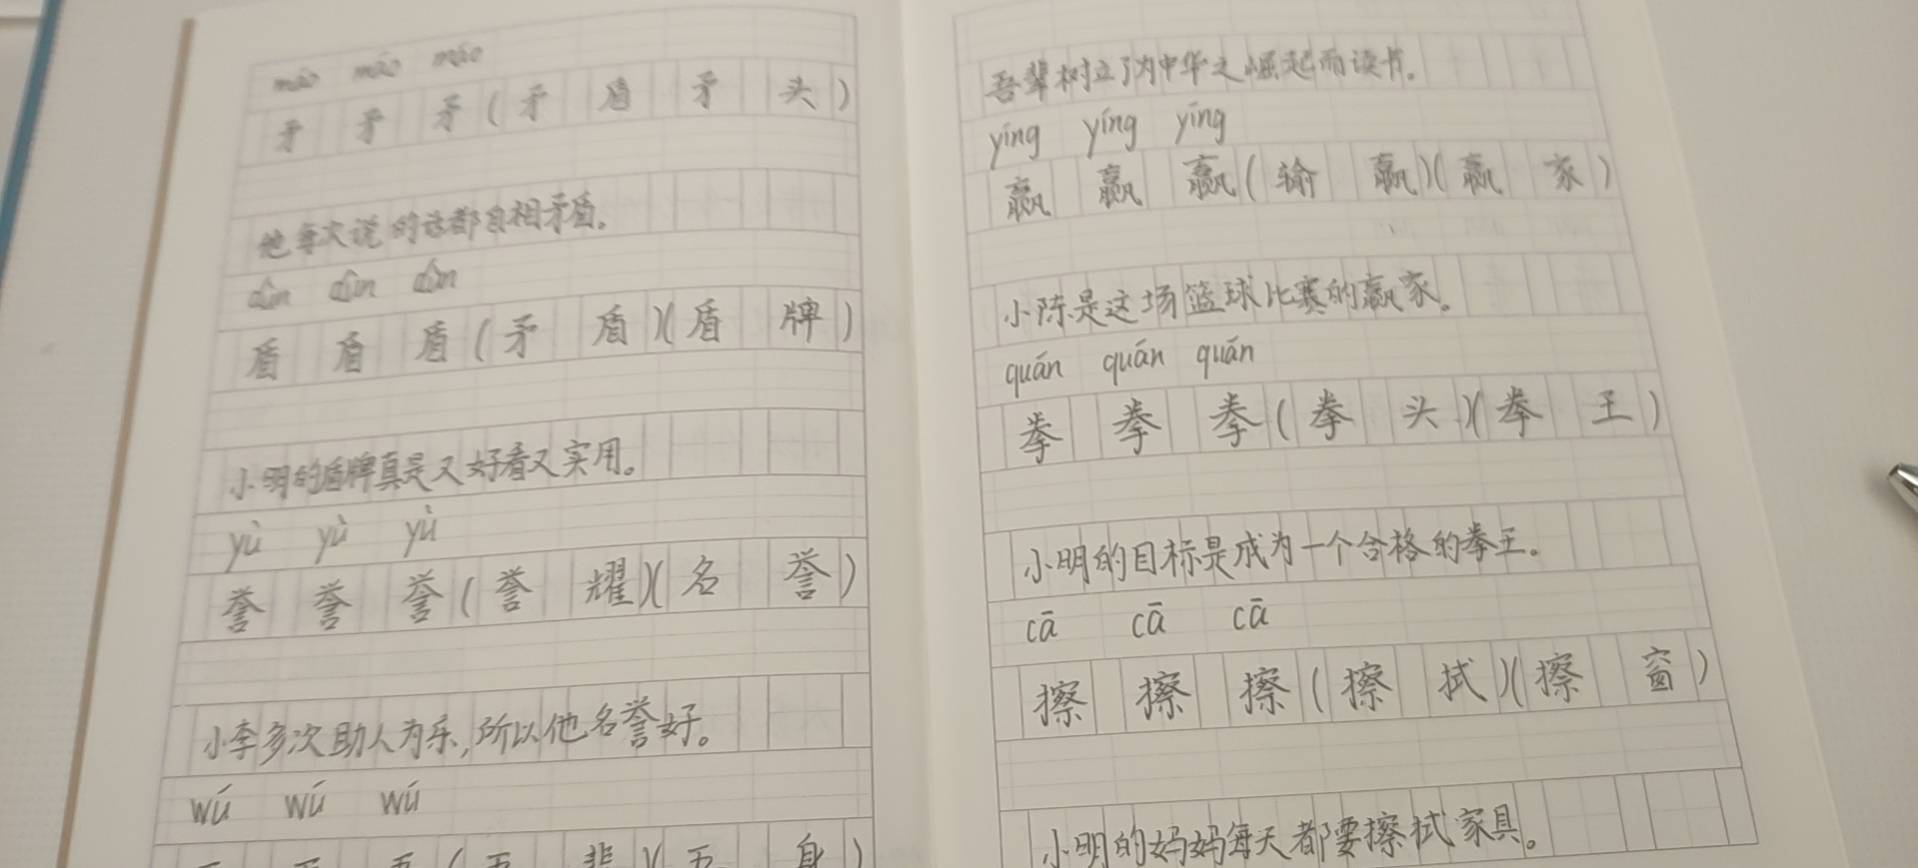 máo máo máo
矛 矛 矛(矛 盾 矛 头)
他每次说的话都自相矛盾。
dùn dùn dùn
盾 盾 盾(矛 盾)(盾 牌)
小明的盾牌真是又好看又实用。
yù yù yù
誉 誉 誉(誉 耀)(名 誉)
小李多次助人为乐,所以他名誉好。
wú wú wú
吾 吾 吾(吾 辈)(吾 身)
吾辈树立了为中华之崛起而读书。
yíng yíng yíng
赢 赢 赢(输 赢)(赢 家)
小陈是这场篮球比赛的赢家。
quán quán quán
拳 拳 拳(拳 头)(拳 王)
小明的目标是成为一个合格的拳王。
cā cā cā
擦 擦 擦(擦 拭)(擦 窗)
小明的妈妈每天都要擦拭家具。